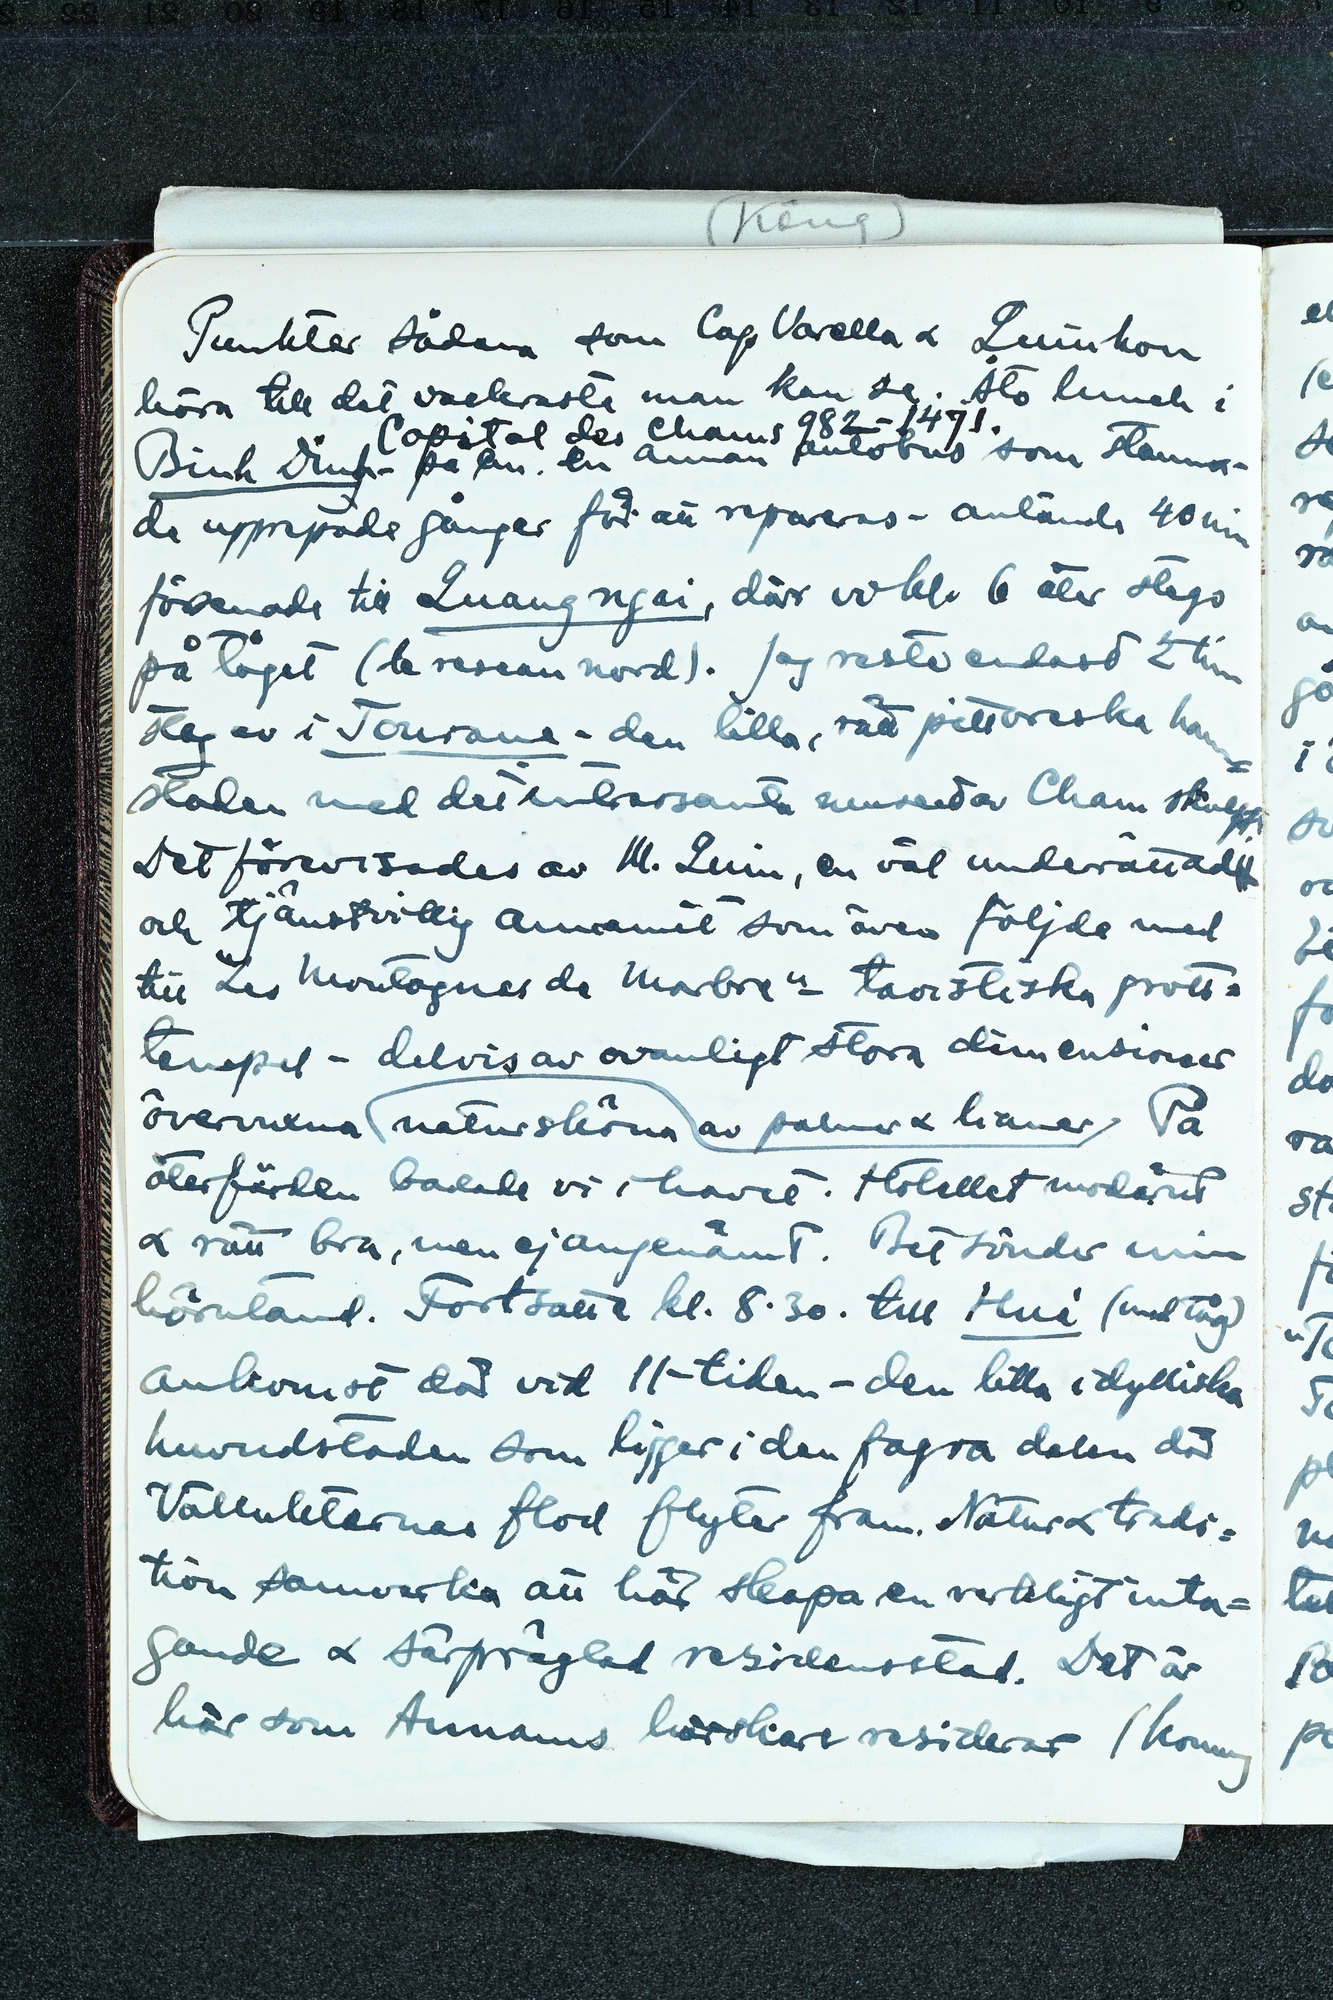 (Kéng)
Punkter sådana som Cap Varella & Quinhon
höra till det vackraste man kan se. Åto lunch i
Capital des Chams 982-1471.
Binh Dinh - på em. en annan autobus som stanna-
de upprepade gånger för att repareras - anlände 40 min
försenade till Quang ngai, där vi kl. 6 åter stego
på tåget (le reseau nord). Jag reste endast 2 tim
steg av i Tourane - den lilla, rätt pittoreska hamn=
staden med det intressanta museet av Cham skulpt.
Det förevisades av M. Quin, en väl underrättad
och tjänstvillig annamit som även följde med
till "Les Montagnes de Marbre" - taoistiska grott=
tempel - delvis av ovanligt stora dimensioner
övervuxna natursköna av palmer & lianer. På
återfärden badade vi i havet. Hotellet modärnt
& rätt bra, men ej angenämt. Bet sönder min
hörntand. Fortsatte kl. 8.30. till Hué (med tåg)
ankomst där vid 11-tiden - den lilla idylliska
huvudstaden som ligger i den fagra dalen där
Vällukternas flod flyter fram. Natur & tradi=
tion samverka att här skapa en verkligt inta=
gande & särpräglad residensstad. Det är
här som Annams härskare residerar (konung